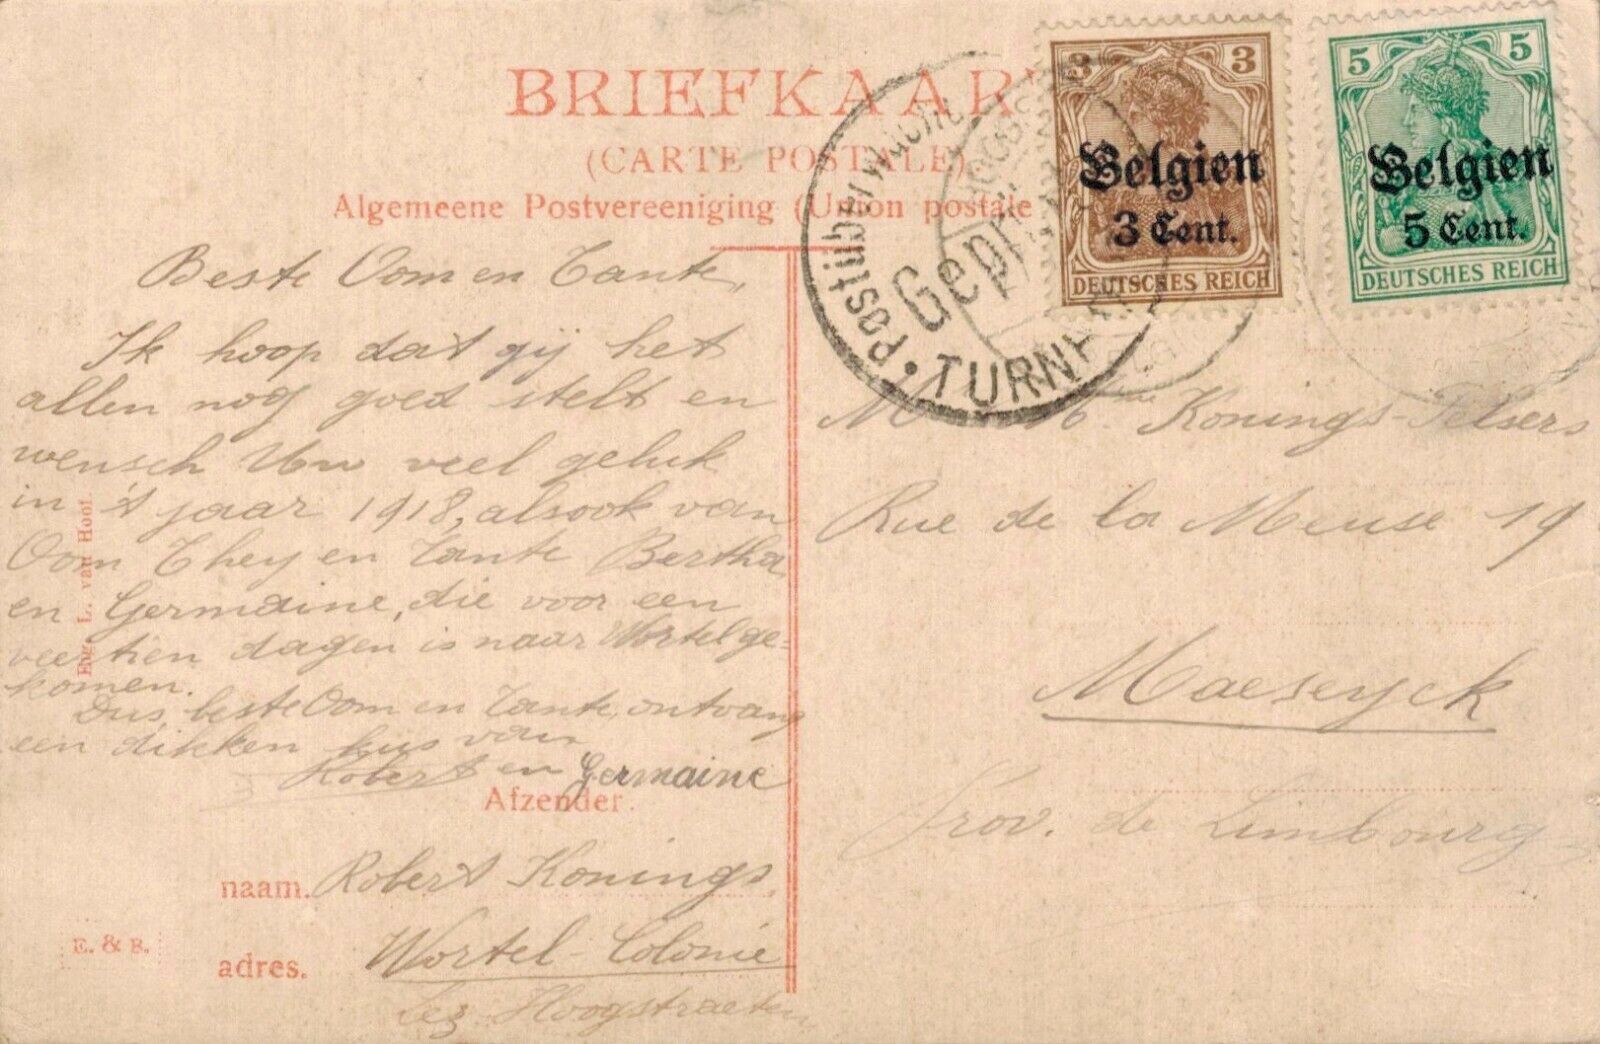 BRIEFKAART
(CARTE POSTALE)
Algemeene Postvereeniging (Union postale
3 3
Belgien
3 Cent.
DEUTSCHES REICH
5 5
Belgien
5 Cent.
DEUTSCHES REICH
Postüberwachung
Gepr
• TURNH
Beste Oom en Tante,
Ik hoop dat gij het
allen nog goed stelt en
wensch Uw veel geluk
in 't jaar 1918, alsook van
Oom They en Tante Bertha
en Germaine, die voor een
veertien dagen is naar Wortel ge-
komen.
Dus, beste Oom en Tante, ontvang
een dikken kus van
Robert en Germaine
Konings-Pelsers
Rue de la Meuse 19
Maeseyck
Prov. de Limbourg
Afzender.
naam. Robert Konings
adres. Wortel-Colonie
Lez Hoogstraeten
E. & B.
L. van Hoof